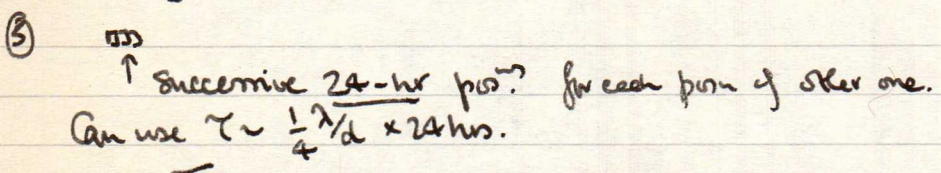 ③
↑ Successive 24-hr pos.ns for each posn of other one.
Can use τ ~ 1/4 λ/d × 24 hrs.